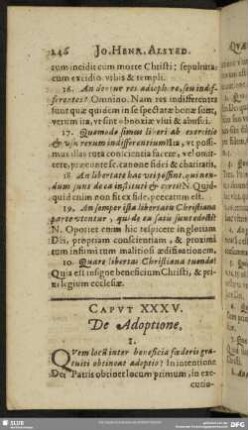 146 JO. HENR. ALSTED.
tum incidit cum morte Christi; sepultura,
cum excidio vrbis & templi.
16. An dentur res adiaphoræ, seu indif-
ferentes? Omnino. Nam res indifferentes
sunt quæ quidem in se spectatæ bonæ sunt,
verum ita, vt sint obnoxiæ vsui & abusui.
17. Quomodo simus liberi ab exercitio
& vsu rerum indifferentium? Ita, vt possi-
mus illas tuta conscientia facere, vel omit-
tere, pro ratione sc. canone fidei & charitatis.
18. An libertate hac vti possint, qui non-
dum sunt de ea instituti & certi? N. Quid-
quid enim non fit ex fide, peccatum est.
19. An semper ista libertate Christiana
vtentur, qui de ea satis sunt edocti?
N. Oportet enim hic respicere in gloriam
Dei, propriam conscientiam, & proximi
tum infirmi tum malitiosi ædificationem.
20. Quare libertas Christiana tuenda?
Quia est insigne beneficium Christi, & pri-
vilegium ecclesiæ.
CAPVT XXXV.
De Adoptione.
1.
QVem locum inter beneficia fœderis gra-
tuiti obtinet adoptio? In intentione
Dei Patris obtinet locum primum, in exe-
cutio-
SLUB
DFG